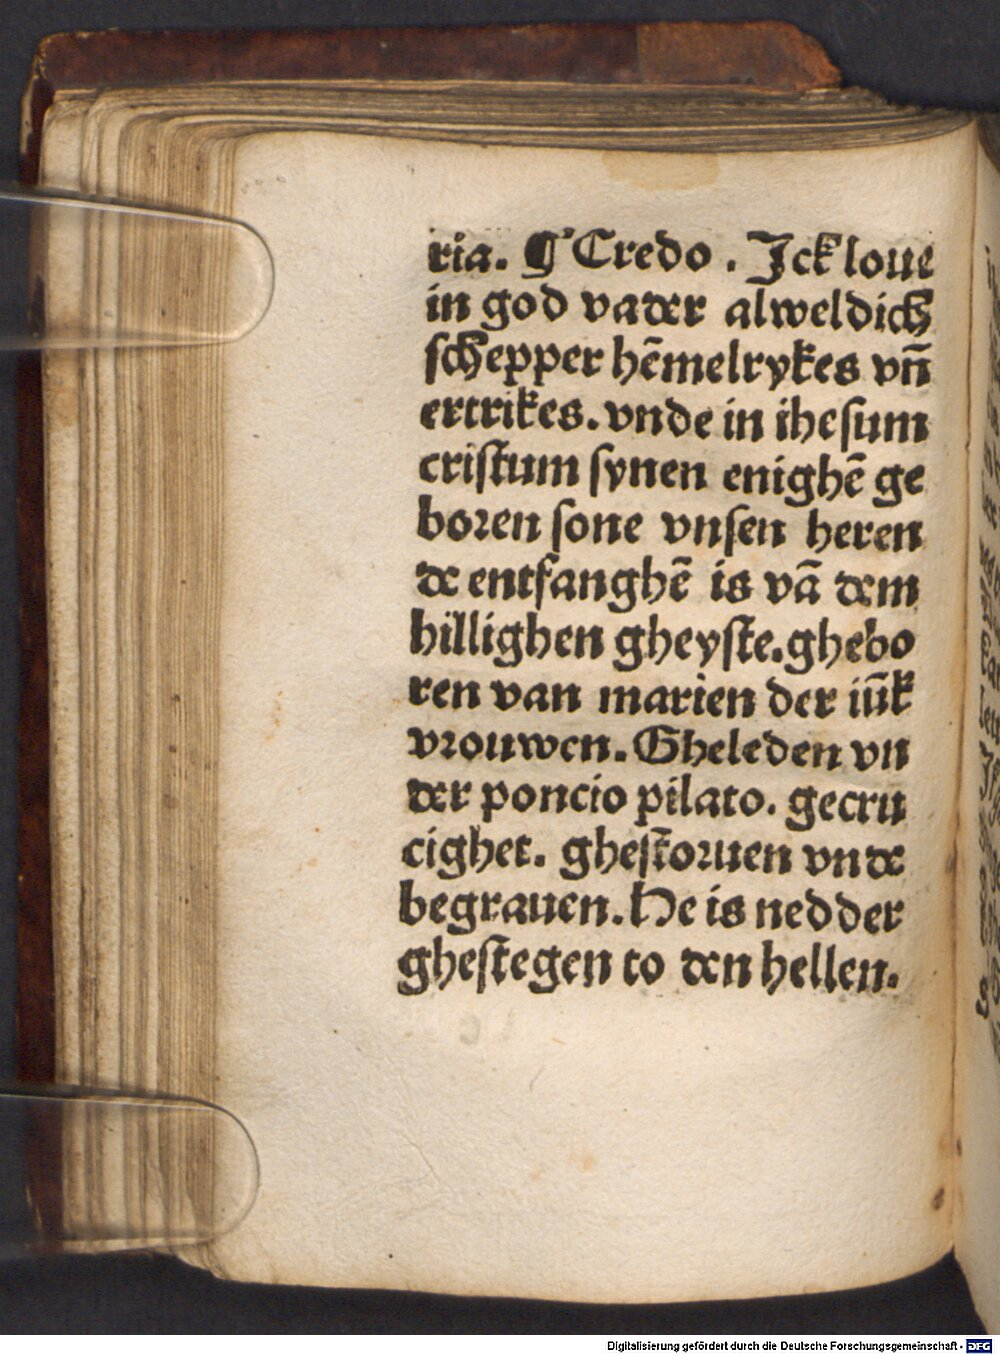 ria. ¶ Credo. Jck loue
in god vader alweldich
schepper hēmelrykes vn̄
ertrikes. vnde in ihesum
cristum synen enighē ge
boren sone vnsen heren
de entfanghē is vā dem
hillighen gheyste. ghebo
ren van marien der iūk
vrouwen. Gheleden vn
der poncio pilato. gecru
cighet. ghestoruen vnde
begrauen. He is nedder
ghestegen to den hellen.
Digitalisierung gefördert durch die Deutsche Forschungsgemeinschaft - DFG